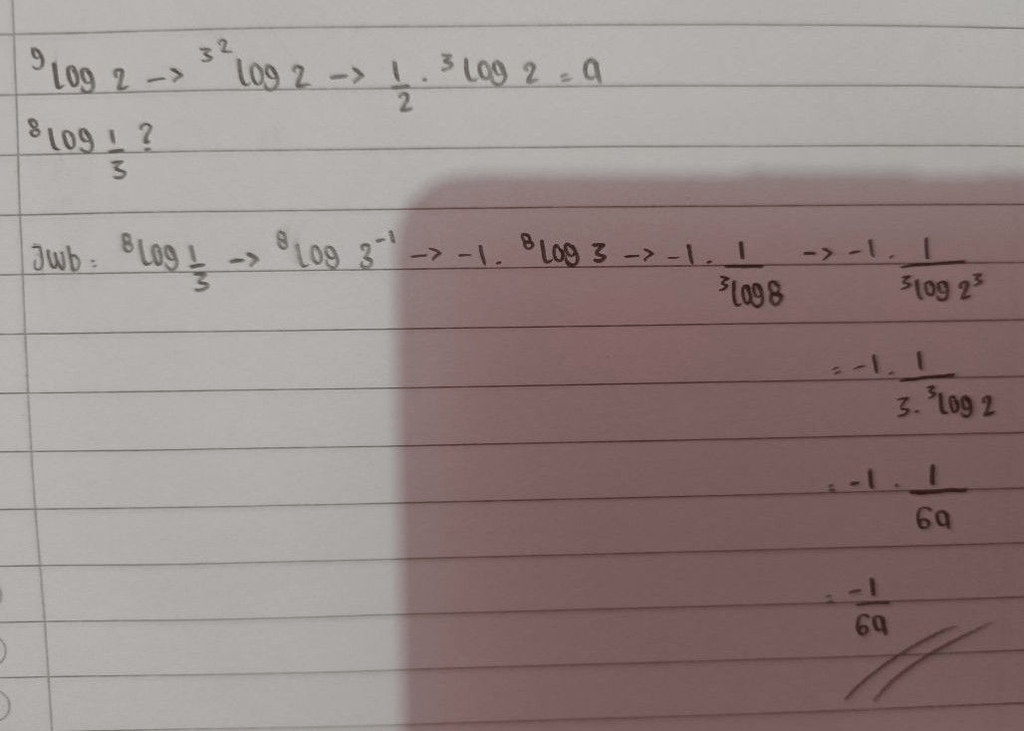 ⁹log 2 -> ³^² log 2 -> 1/2 · ³log 2 = a
⁸log 1/3 ?
Jwb : ⁸log 1/3 -> ⁸log 3⁻¹ -> -1 . ⁸log 3 -> -1 . 1/³log 8 -> -1 . 1/³log 2³
= -1 . 1/3 . ³log 2
= -1 . 1/6a
= -1/6a